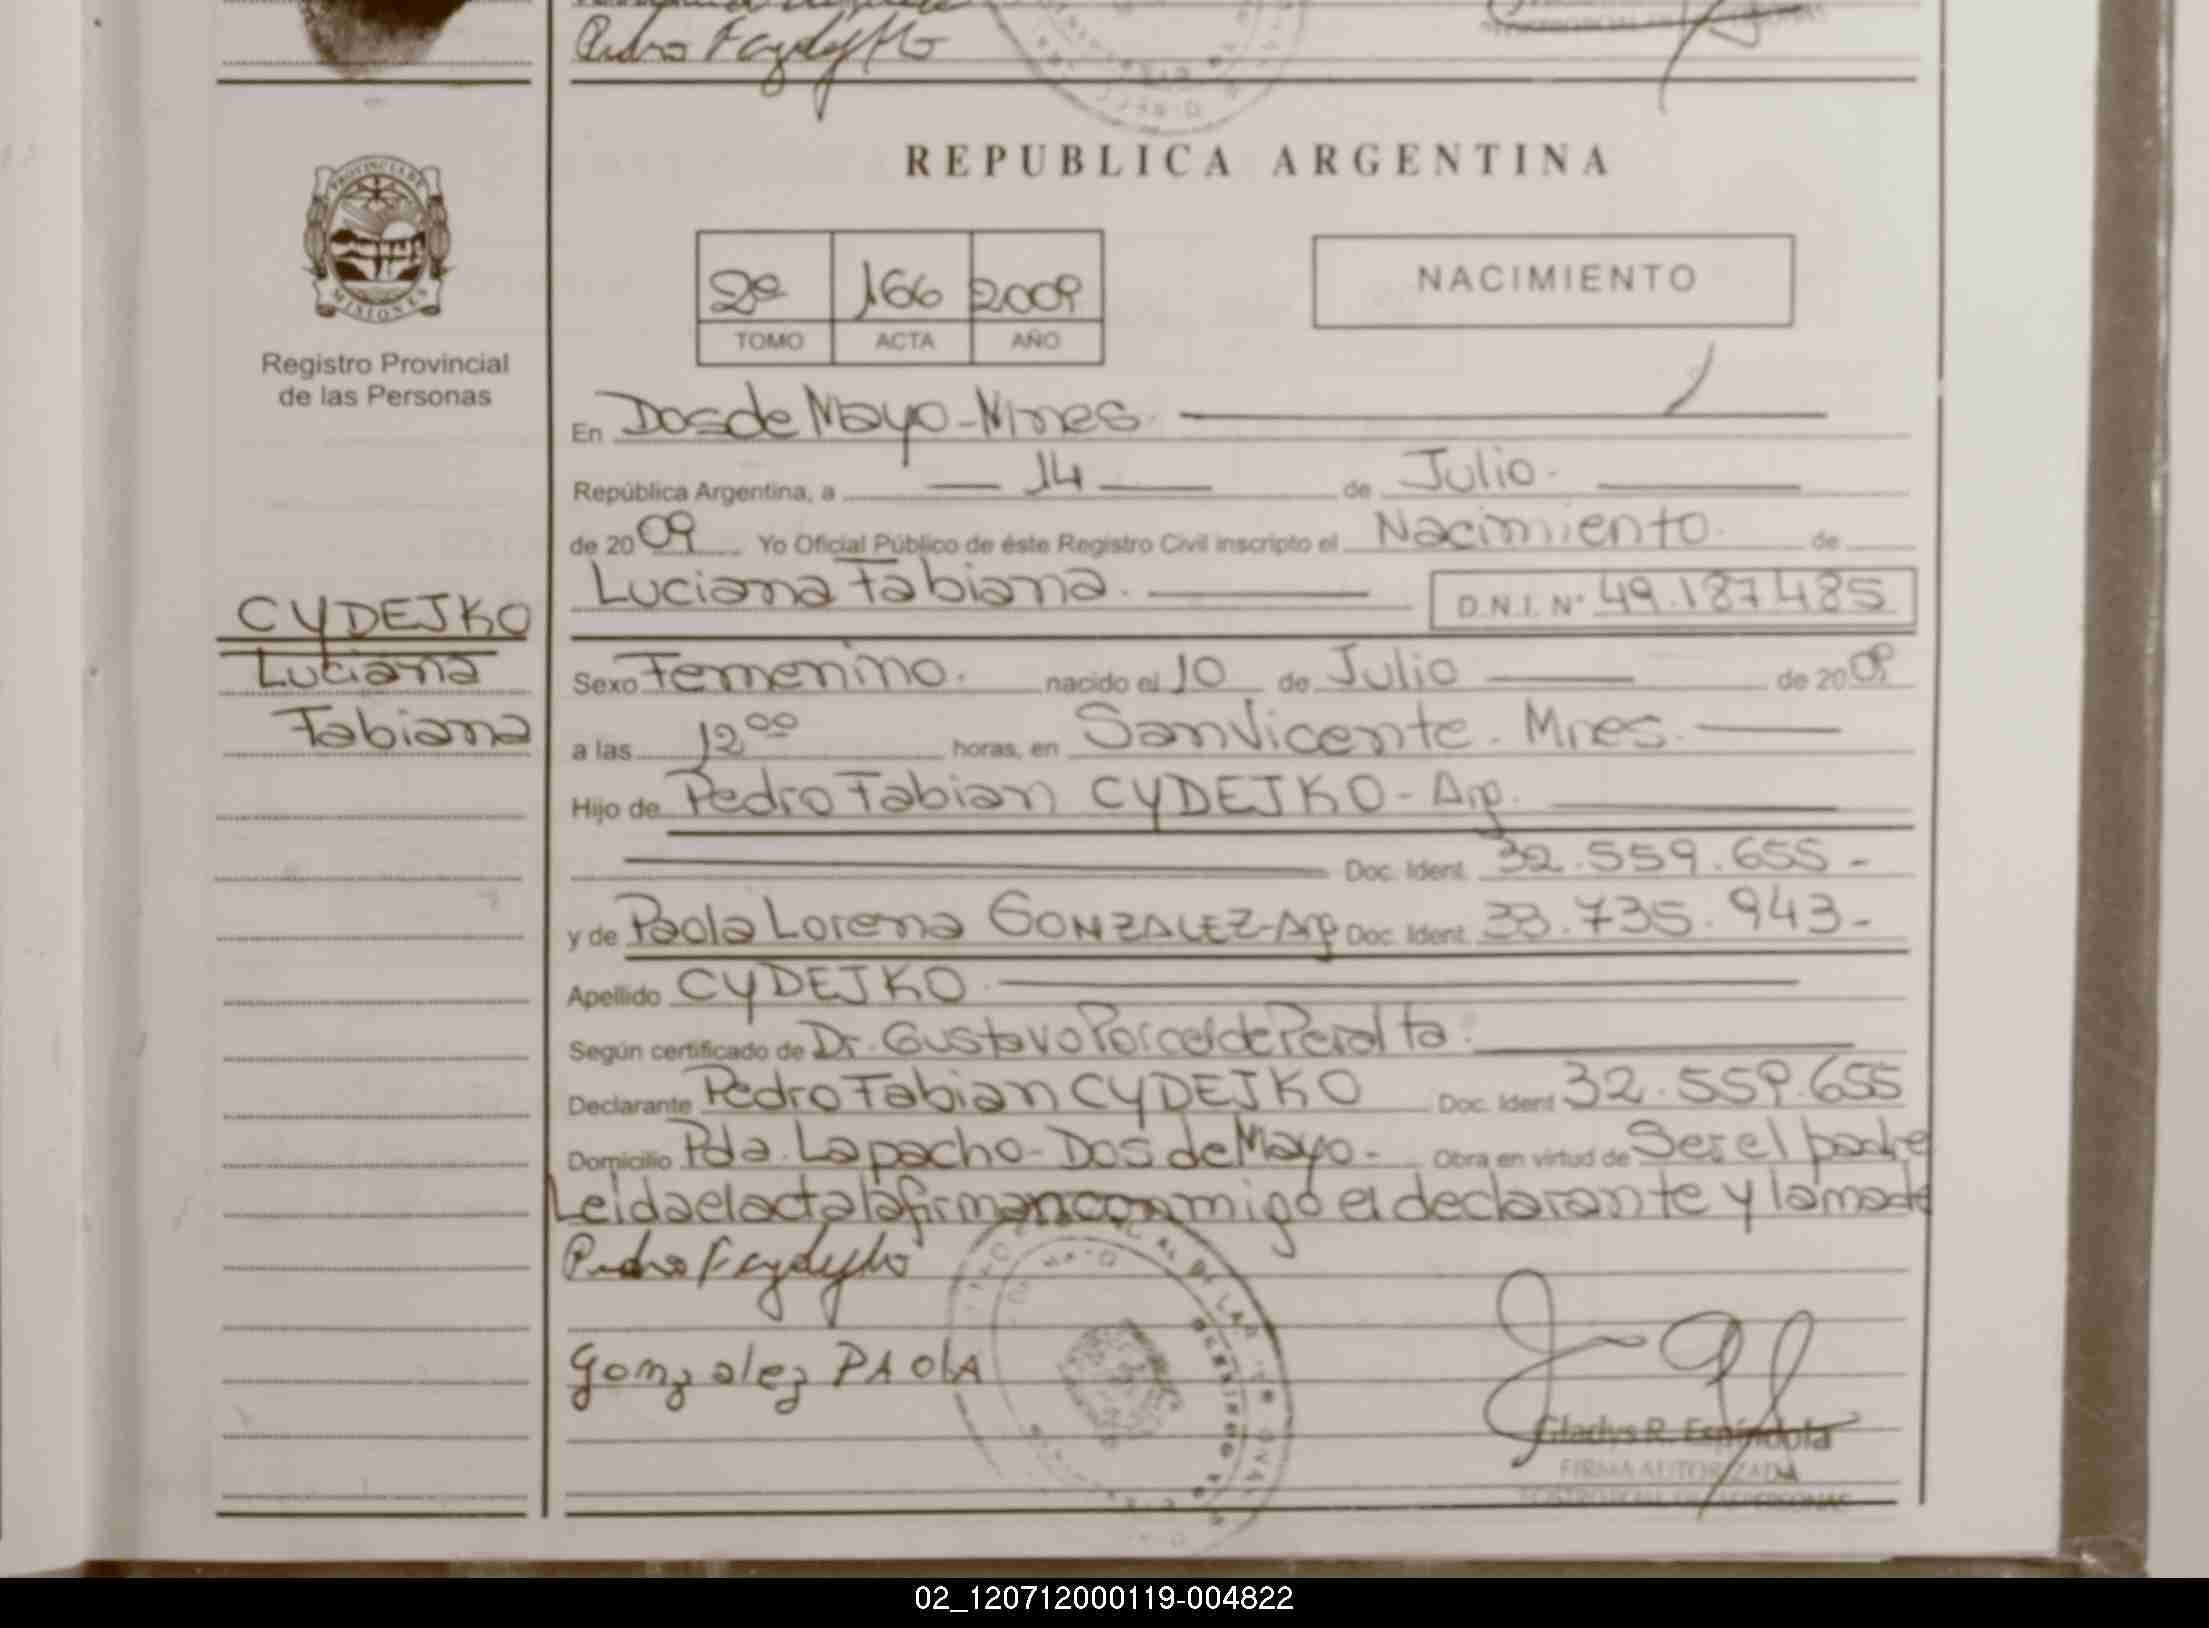 Pedro F Cydejko
REPUBLICA ARGENTINA
PROVINCIA DE
MISIONES
Registro Provincial
de las Personas
2º 166 2009
TOMO ACTA AÑO
NACIMIENTO
En Dos de Mayo-Mnes.
República Argentina, a 14 de Julio.
de 2009 Yo Oficial Público de éste Registro Civil inscripto el Nacimiento. de
Luciana Fabiana. D.N.I. Nº 49.187.485
CYDEJKO
Luciana
Fabiana
Sexo Femenino. nacido el 10 de Julio de 2009
a las 12 00 horas, en San Vicente. Mnes.
Hijo de Pedro Fabian CYDEJKO - Arg.
Doc. Ident. 32.559.655 -
y de Paola Lorena GONZALEZ-Arg Doc. Ident. 33.735.943-
Apellido CYDEJKO.
Según certificado de Dr. Gustavo Porcel de Peralta.
Declarante Pedro Fabian CYDEJKO Doc. Ident 32.559.655
Domicilio Pda. Lapacho-Dos de Mayo- Obra en virtud de Ser el padre
Leida el acta la firman conmigo el declarante y la madre
Pedro F Cydejko
Gonzalez PAOLA
Gladys R. Espíndola
FIRMA AUTORIZADA
02_120712000119-004822